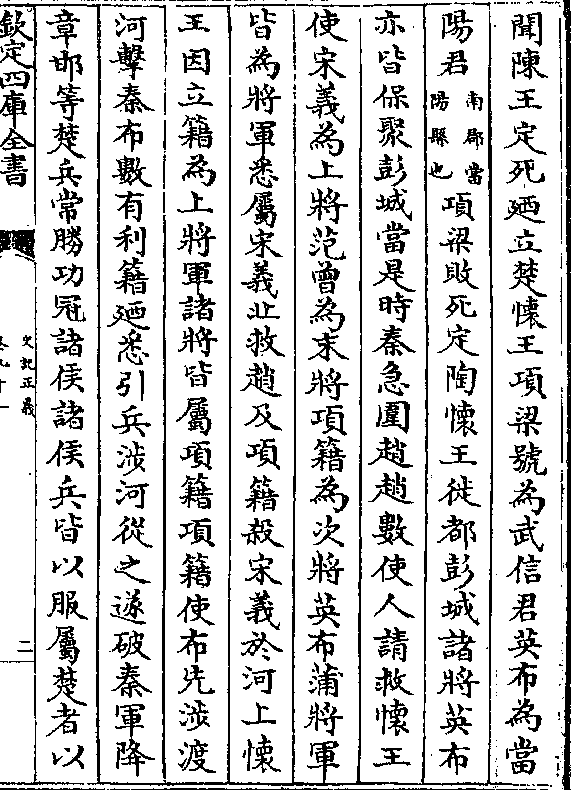 聞陳王定死廼立楚懐王項梁號為武信君英布為當
陽君南郡當陽縣也項梁敗死定陶懐王徙都彭城諸將英布
亦皆保聚彭城當是時秦急圍趙趙數使人請救懐王
使宋義為上將范曾為末將項籍為次將英布蒲將軍
皆為將軍悉屬宋義北救趙及項籍殺宋義於河上懐
王因立籍為上將軍諸將皆屬項籍項籍使布先涉渡
河擊秦布數有利籍廼悉引兵涉河從之遂破秦軍降
章邯等楚兵常勝功冠諸侯諸侯兵皆以服屬楚者以
欽定四庫全書
史記正義
卷九十一
二